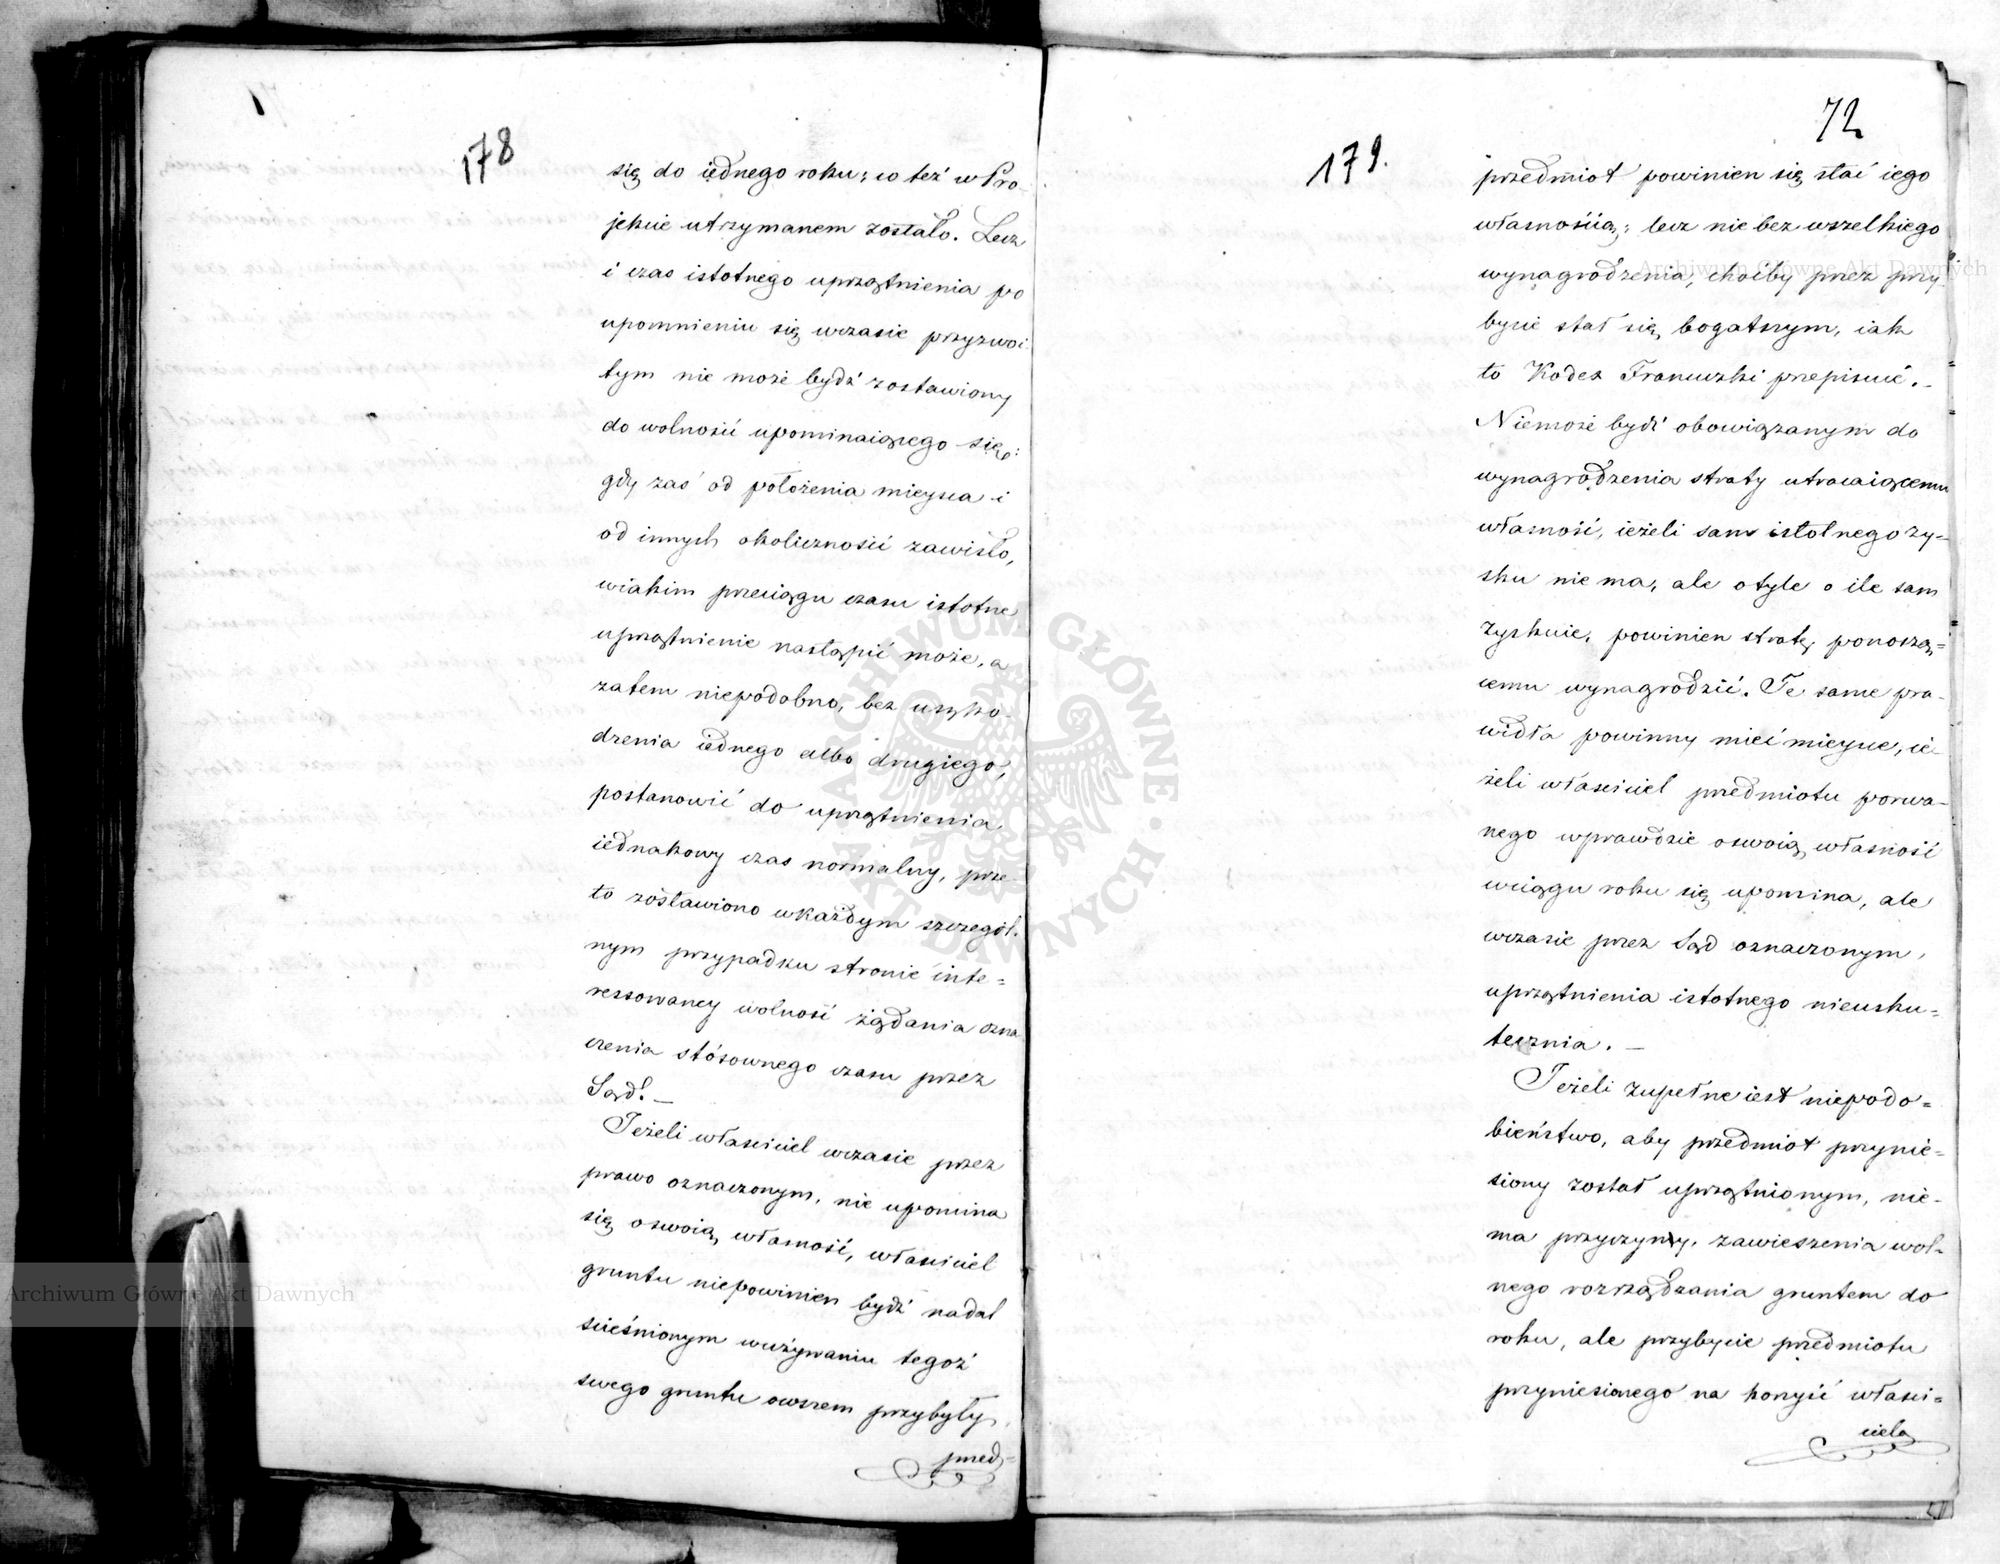 178
się do iednego roku; co też w Pro-
jekcie utrzymanem zostało. Lecz
i czas istotnego uprzątnienia po
upomnieniu się wczasie przyzwoi-
tym nie może bydź zostawiony
do wolności upominaiącego się:
gdy zaś od położenia mieysca i
od innych okoliczności zawisło,
wiakim przeciągu czasu istotne
uprzątnienie nastąpić może, a
zatem niepodobno, bez uszko-
dzenia iednego albo drugiego,
postanowić do uprzątnienia
iednakowy czas normalny, prze-
to zostawiono wkażdym szczegól-
nym przypadku stronie inte=
ressowaney wolność żądania ozna
czenia stósownego czasu przez
Sąd. —
Jeżeli właściciel wczasie przez
prawo oznaczonym, nie upomina
się oswoią własność, właściciel
gruntu niepowinien bydź nadal
ścieśnionym wużywaniu tegoż
swego gruntu owszem przybyły
przed=
72
179.
przedmiot powinien się stać iego
własnością; lecz nie bez wszelkiego
wynagrodzenia, choćby przez przy
bycie stał się bogatszym, iak
to Kodex Francuzki przepisuie. -
Niemoże bydź obowiązanym do
wynagrodzenia straty utracaiącemu
własność, ieżeli sam istotnego zy=
sku nie ma, ale o tyle o ile sam
zyskuie, powinien stratę ponoszą=
cemu wynagrodzić. Te same pra-
widła powinny mieć mieysce, ie-
żeli właściciel przedmiotu porwa-
nego wprawdzie oswoią własność
wciągu roku się upomina, ale
wczasie przez Sąd oznaczonym,
uprzątnienia istotnego nieusku=
tecznia. —
Jeżeli zupełne iest niepodo=
bieństwo, aby przedmiot przynie=
siony został uprzątnionym, nie-
ma przyczyny, zawieszenia wol-
nego rozrządzania gruntem do
roku, ale przybycie przedmiotu
przyniesionego na korzyść właści=
ciela
Archiwum Główne Akt Dawnych
Archiwum Główne Akt Dawnych
ARCHIWUM GŁÓWNE AKT DAWNYCH